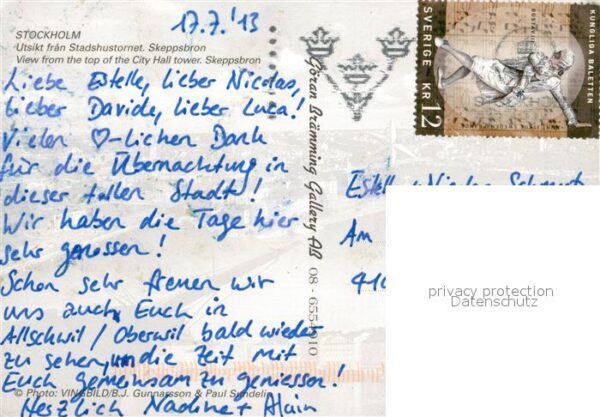 17.7.'13
STOCKHOLM
Utsikt från Stadshustornet. Skeppsbron
View from the top of the City Hall tower. Skeppsbron
Liebe Estelle, lieber Nicolas,
lieber Davide, lieber Luca!
Vielen ♡-lichen Dank
für die Übernachtung in
dieser tollen Stadt!
Wir haben die Tage hier
sehr genossen!
Schon sehr freuen wir
uns auch Euch in
Allschwil / Oberwil bald wieder
zu sehen, um die Zeit mit
Euch gemeinsam zu geniessen!
Herzlich Nadine + Alain
© Photo: VINGBILD/B.J. Gunnarsson & Paul Sundelin
Göran Brämming Gallery AB 08 - 6554910
SVERIGE KR 12
KUNGLIGA BALETTEN
Am
privacy protection
Datenschutz